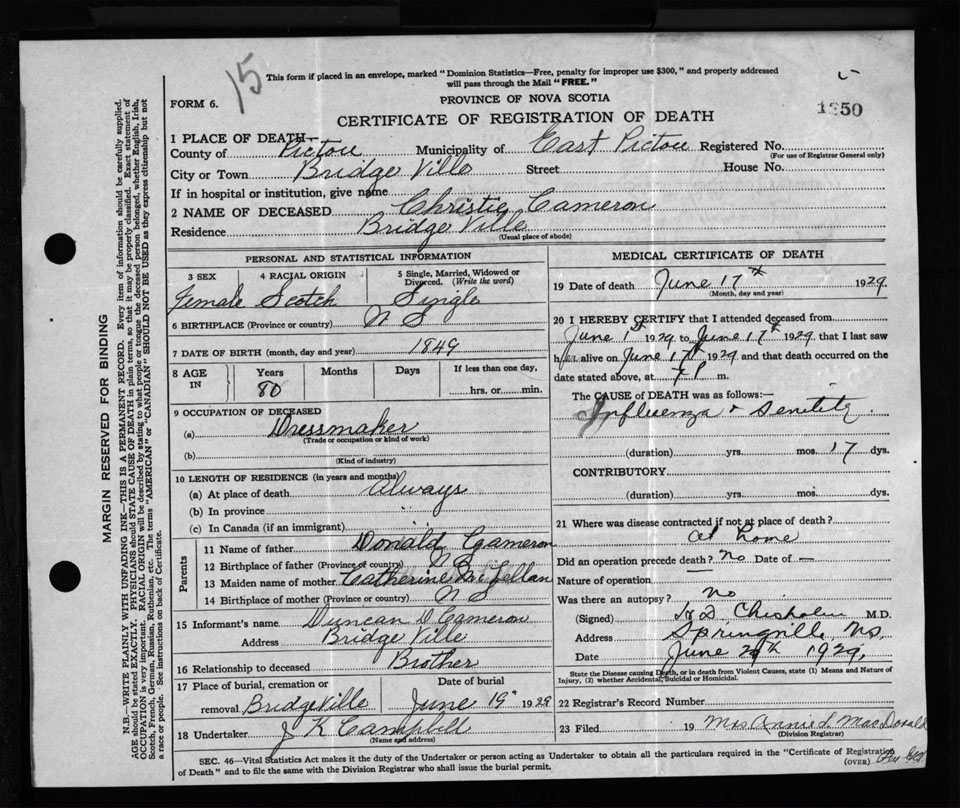 15
This form if placed in an envelope, marked "Dominion Statistics—Free, penalty for improper use $300," and properly addressed
will pass through the Mail "FREE."
FORM 6.
PROVINCE OF NOVA SCOTIA
1350
CERTIFICATE OF REGISTRATION OF DEATH
1 PLACE OF DEATH—
County of Pictou Municipality of East Pictou Registered No.
(For use of Registrar General only)
City or Town Bridge Ville Street House No.
If in hospital or institution, give name
2 NAME OF DECEASED Christie Cameron
Residence Bridge Ville
(Usual place of abode)
PERSONAL AND STATISTICAL INFORMATION
3 SEX 4 RACIAL ORIGIN 5 Single, Married, Widowed or
Divorced. (Write the word)
Female Scotch Single
6 BIRTHPLACE (Province or country) N S
7 DATE OF BIRTH (month, day and year) 1849
8 AGE IN Years Months Days If less than one day,
80 hrs. or min.
9 OCCUPATION OF DECEASED
(a) Dressmaker
(Trade or occupation or kind of work)
(b)
(Kind of industry)
10 LENGTH OF RESIDENCE (in years and months)
(a) At place of death Always
(b) In province "
(c) In Canada (if an immigrant) "
Parents
11 Name of father Donald Cameron
12 Birthplace of father (Province or country) N S
13 Maiden name of mother Catherine McLellan
14 Birthplace of mother (Province or country) N S
15 Informant's name Duncan D Cameron
Address Bridge Ville
16 Relationship to deceased Brother
17 Place of burial, cremation or Date of burial
removal BridgeVille June 19" 1929
18 Undertaker J K Campbell
(Name and address)
MEDICAL CERTIFICATE OF DEATH
19 Date of death June 17th 1929
(Month, day and year)
20 I HEREBY CERTIFY that I attended deceased from
June 1st 1929 to June 17th 1929 that I last saw
her alive on June 17th 1929 and that death occurred on the
date stated above, at m.
The CAUSE of DEATH was as follows:—
Influenza & Senility
(duration) yrs. mos. 17 dys.
CONTRIBUTORY
(duration) yrs. mos. dys.
21 Where was disease contracted if not at place of death?
at home
Did an operation precede death? No Date of —
Nature of operation —
Was there an autopsy? no
(Signed) H D Chisholm M.D.
Address Springville, N.S.
Date June 1929
State the Disease causing Death, or in death from Violent Causes, state (1) Means and Nature of
Injury, (2) whether Accidental, Suicidal or Homicidal.
22 Registrar's Record Number
23 Filed 19 Mrs Annie L MacDonald
(Division Registrar)
SEC. 46—Vital Statistics Act makes it the duty of the Undertaker or person acting as Undertaker to obtain all the particulars required in the "Certificate of Registration
of Death" and to file the same with the Division Registrar who shall issue the burial permit.
(OVER)
MARGIN RESERVED FOR BINDING
N.B.—WRITE PLAINLY WITH UNFADING INK—THIS IS A PERMANENT RECORD. Every item of information should be carefully supplied.
AGE should be stated EXACTLY. PHYSICIANS should STATE CAUSE OF DEATH in plain terms, so that it may be properly classified. Exact statement of
OCCUPATION is very important. RACIAL ORIGIN will be described by stating to what people or tongue the deceased person belonged, whether English, Irish,
Scotch, French, German, Russian, Ruthenian, etc. The terms "AMERICAN" or "CANADIAN" SHOULD NOT BE USED as they express citizenship but not
a race or people. See instructions on back of Certificate.